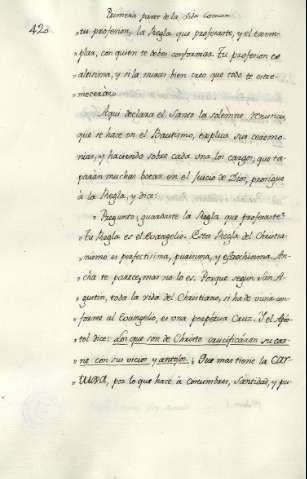 Primera parte de la Vida Comun
42.
"tu profesion, la Regla que profesaste, y el exem-
"plar, con quien te debes conformar. Tu profesion es
"altisima, y si la miras bien creo que toda te estre-
"mecerás."
Aqui declara el Santo la solemne renuncia,
que se hace en el Bautismo, explica sus ceremo-
nias, y haciendo sobre cada una los cargos, que ta-
parán muchas bocas en el Juicio de Dios, prosigue
à la Regla, y dice:
"Pregunto, guardaste la Regla que profesaste?
"Tu Regla es el Evangelio. Esta Regla del Christia-
"nismo es perfectisima, purisima, y estrechisima. An-
cha te parece, mas no lo es. Porque segun San A-
gustin, toda la vida del Christiano, si ha de vivir con-
forme al Evangelio, es una perpétua Cruz. Y el Apos-
tol dice: Los que són de Christo crucificarón su car-
ne con sus vicios y antojos. Que mas tiene la Car-
tuxa, por lo que hace à costumbres, santidad, y pu-